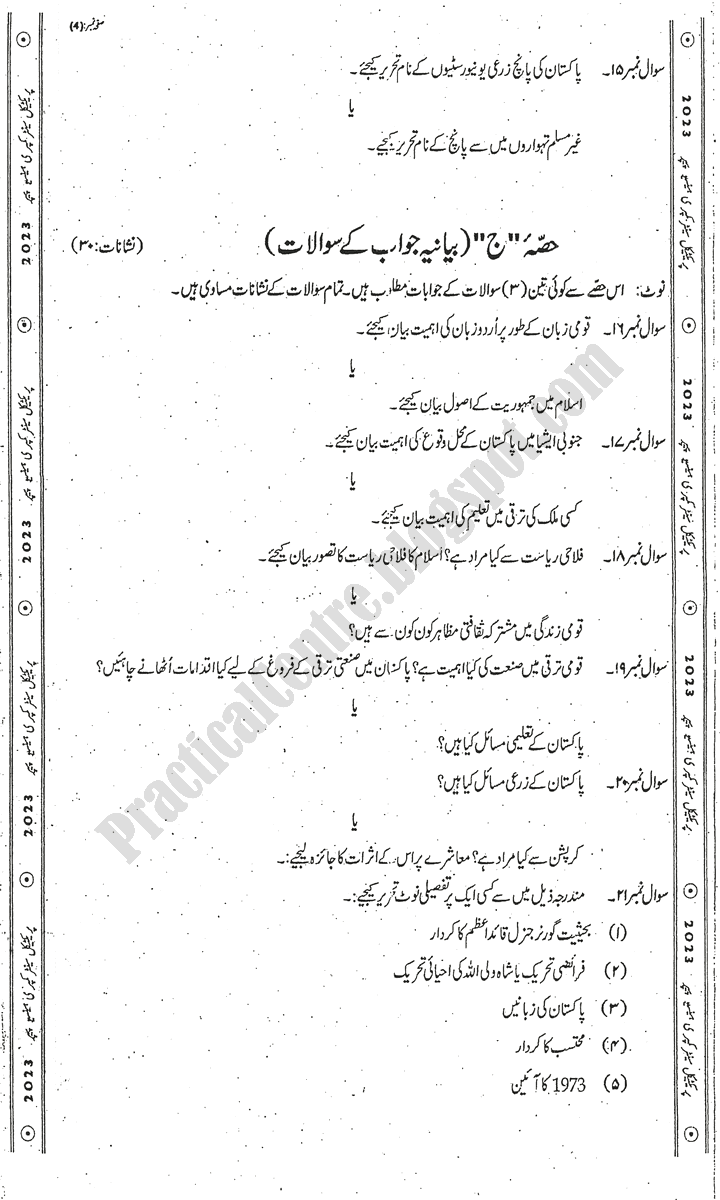 صفحہ نمبر:(4)
سوال نمبر ۱۵۔ پاکستان کی پانچ زرعی یونیورسٹیوں کے نام تحریر کیجئے۔
یا
غیر مسلم تہواروں میں سے پانچ کے نام تحریر کیجیے۔
حصّۂ "ج" (بیانیہ جواب کے سوالات) (نشانات: ۳۰)
نوٹ: اس حصّے سے کوئی تین (۳) سوالات کے جوابات مطلوب ہیں۔ تمام سوالات کے نشانات مساوی ہیں۔
سوال نمبر ۱۶۔ قومی زبان کے طور پر اُردو زبان کی اہمیت بیان کیجئے۔
یا
اسلام میں جمہوریت کے اصول بیان کیجئے۔
سوال نمبر ۱۷۔ جنوبی ایشیا میں پاکستان کے محل وقوع کی اہمیت بیان کیجئے۔
یا
کسی ملک کی ترقی میں تعلیم کی اہمیت بیان کیجئے۔
سوال نمبر ۱۸۔ فلاحی ریاست سے کیا مراد ہے؟ اسلام کا فلاحی ریاست کا تصور بیان کیجئے۔
یا
قومی زندگی میں مشترکہ ثقافتی مظاہر کون کون سے ہیں؟
سوال نمبر ۱۹۔ قومی ترقی میں صنعت کی کیا اہمیت ہے؟ پاکستان میں صنعتی ترقی کے فروغ کے لیے کیا اقدامات اُٹھانے چاہئیں؟
یا
پاکستان کے تعلیمی مسائل کیا ہیں؟
سوال نمبر ۲۰۔ پاکستان کے زرعی مسائل کیا ہیں؟
یا
کرپشن سے کیا مراد ہے؟ معاشرے پر اس کے اثرات کا جائزہ لیجیے:۔
سوال نمبر ۲۱۔ مندرجہ ذیل میں سے کسی ایک پر تفصیلی نوٹ تحریر کیجیے:۔
(۱) بحیثیت گورنر جنرل قائداعظم کا کردار
(۲) فرائضی تحریک یا شاہ ولی اللہ کی احیائی تحریک
(۳) پاکستان کی زبانیں
(۴) محتسب کا کردار
(۵) 1973 کا آئین
PracticalCentre.blogspot.com
2023
2023
2023
2023
2023
2023
2023
2023